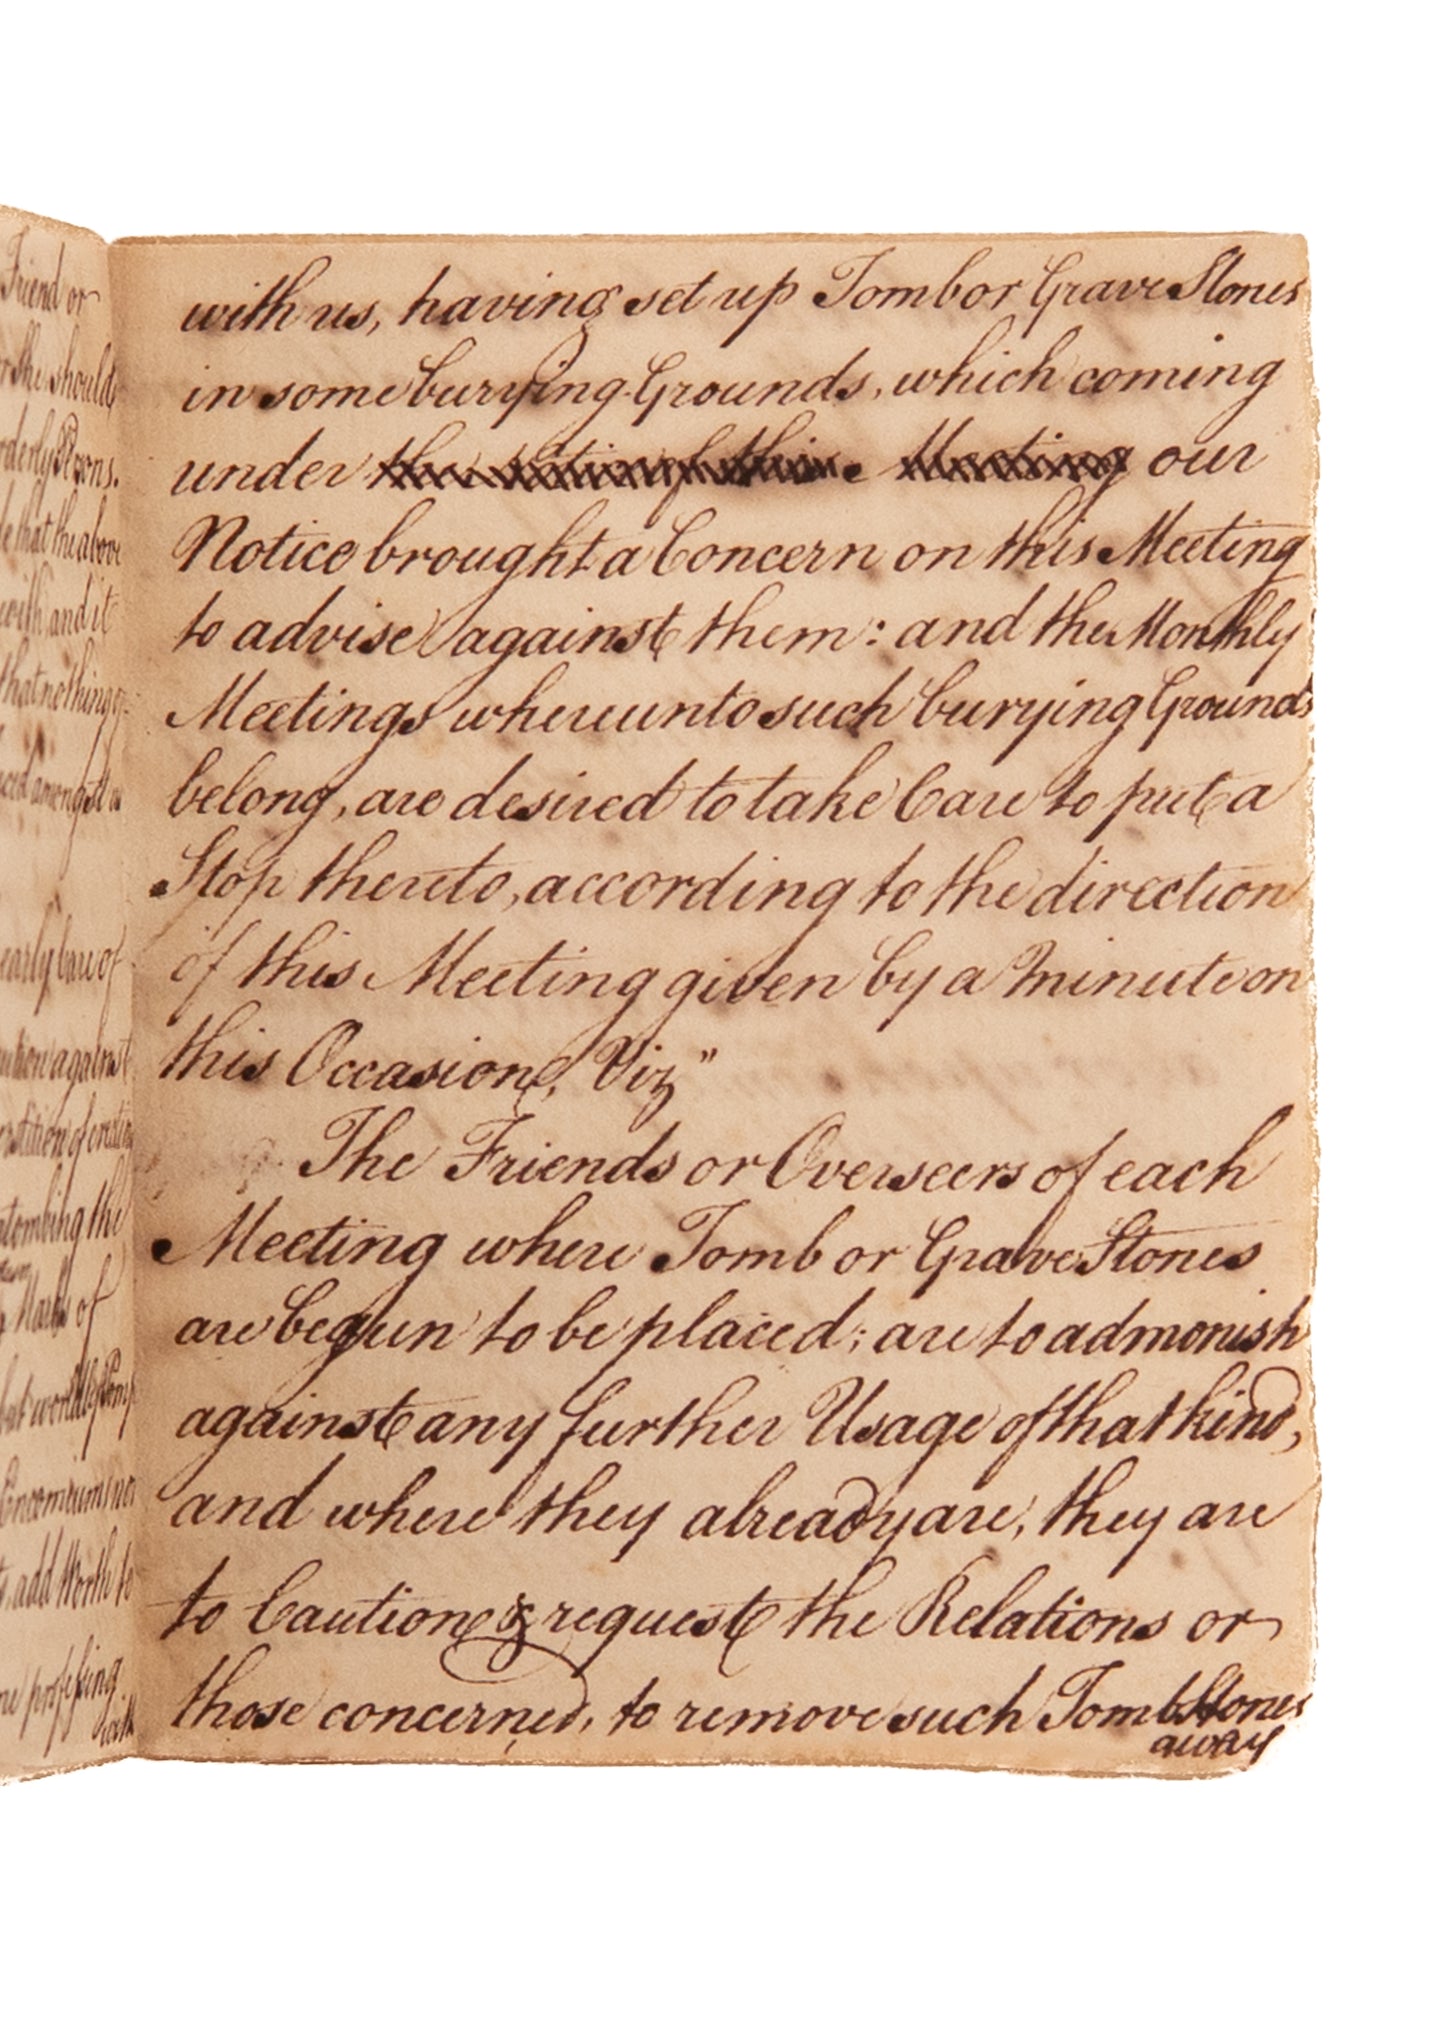 Friend or
she should
that the above
with and it
that nothing
early Care of
against
Marks of
add Worth to
professing
with
with us, having set up Tomb or Grave Stones
in some burying Grounds, which coming
under the Meeting our
Notice brought a Concern on this Meeting
to advise against them: and the Monthly
Meetings whereunto such burying Grounds
belong, are desired to take Care to put a
Stop thereto, according to the direction
of this Meeting given by a Minute on
this Occasion, Viz"
The Friends or Overseers of each
Meeting where Tomb or Grave Stones
are begun to be placed; are to admonish
against any further Usage of that kind,
and where they already are, they are
to Caution & request the Relations or
those concerned, to remove such Tomb Stones
away